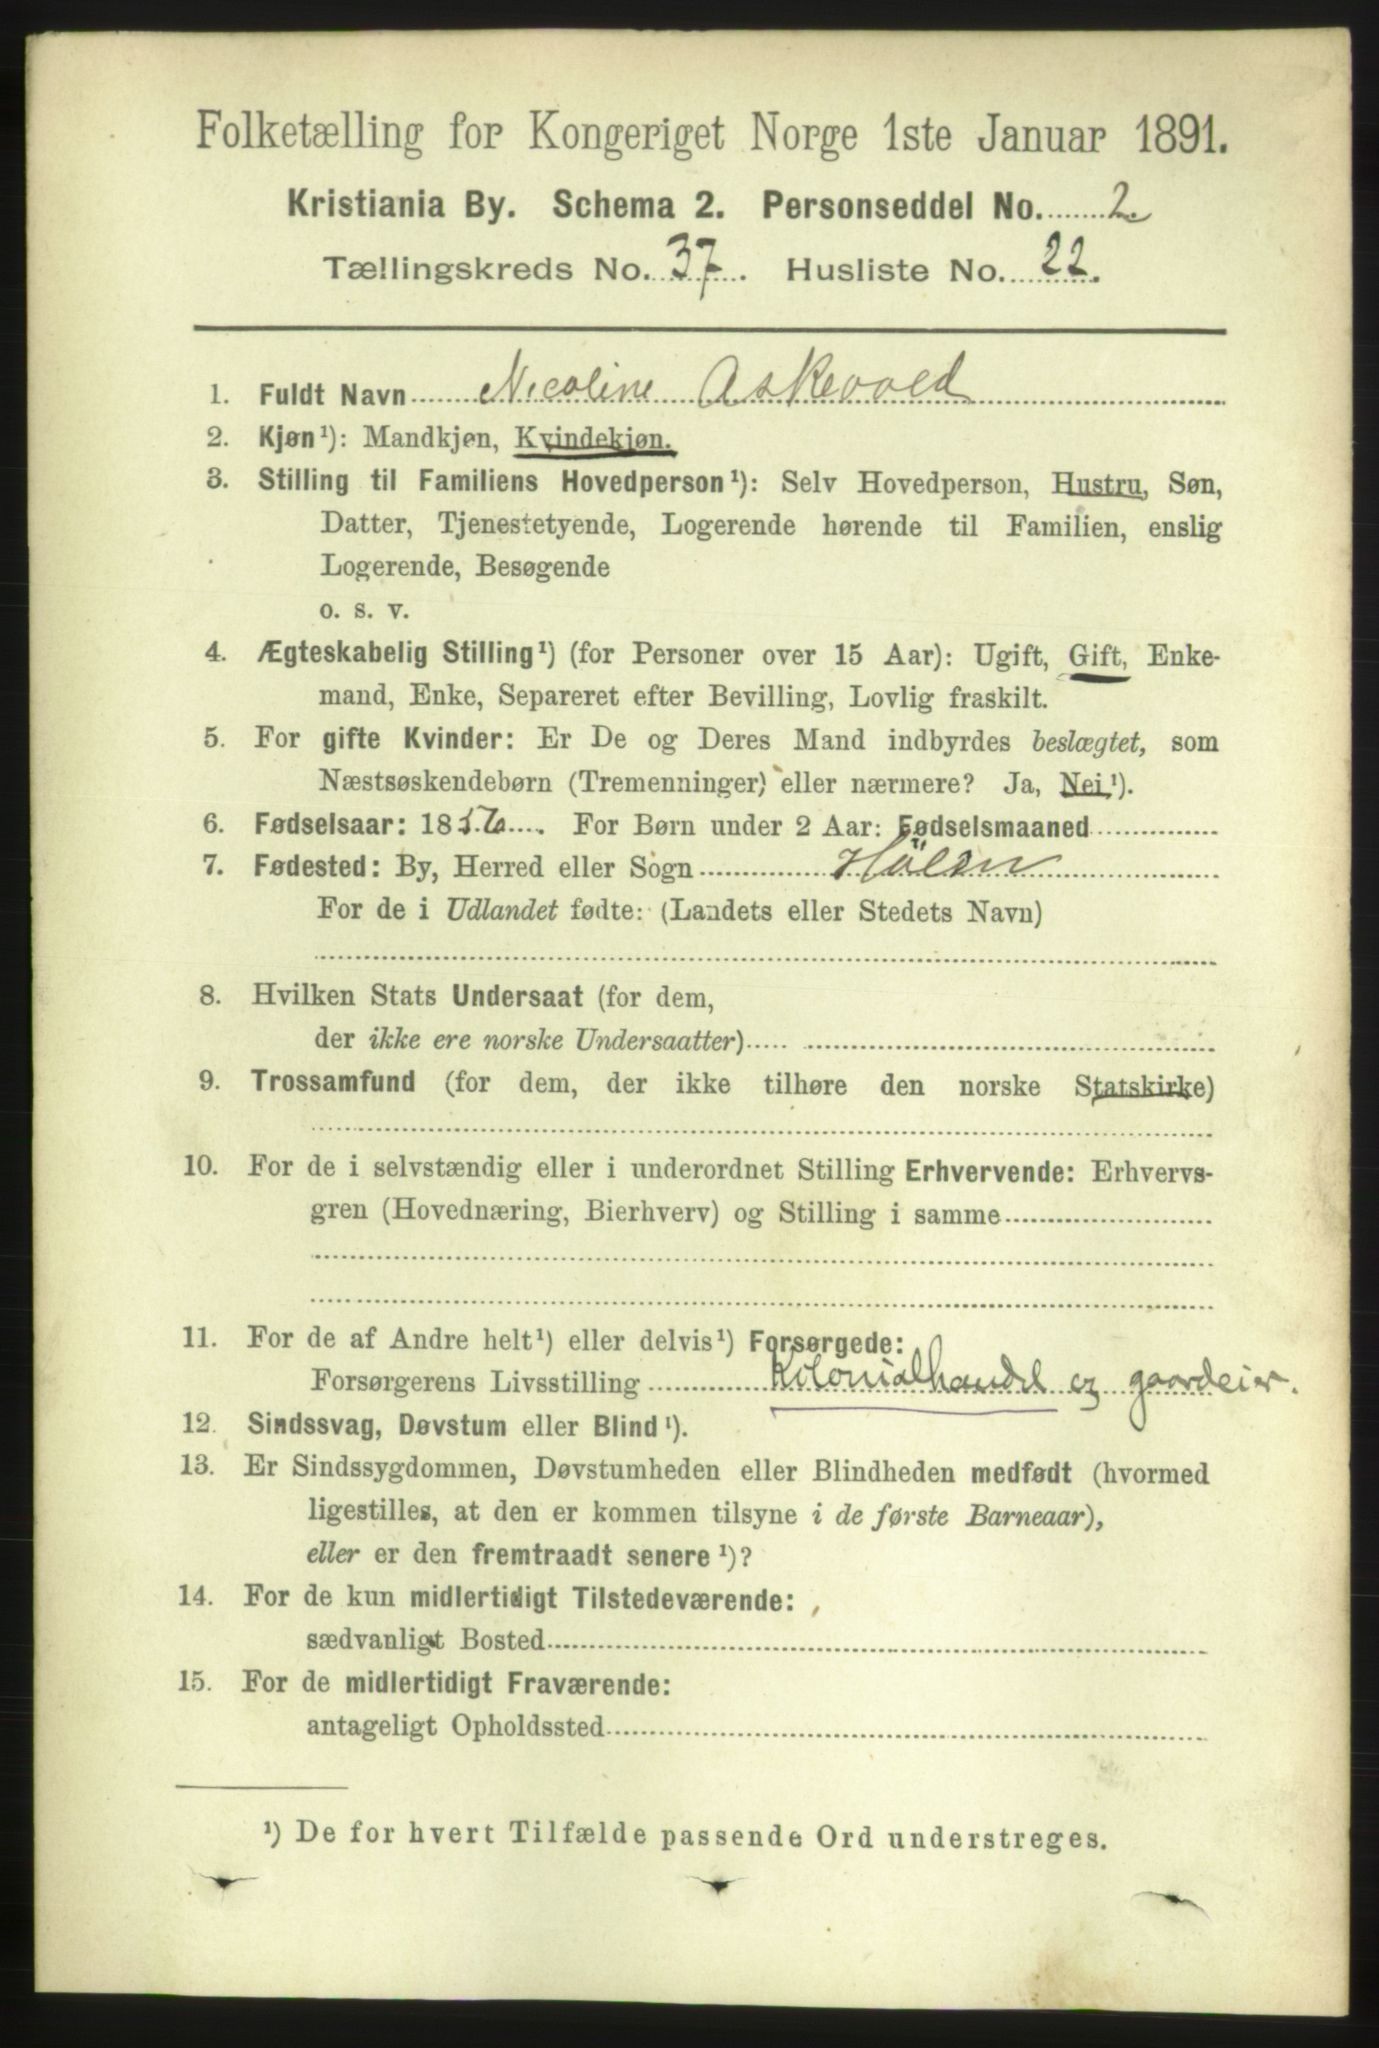 Folketælling for Kongeriget Norge 1ste Januar 1891.
Kristiania By. Schema 2. Personseddel No. 2
Tællingskreds No. 37. Husliste No. 22.
1. Fuldt Navn Nicoline Askevold
2. Kjøn¹): Mandkjøn, Kvindekjøn.
3. Stilling til Familiens Hovedperson¹): Selv Hovedperson, Hustru, Søn,
Datter, Tjenestetyende, Logerende hørende til Familien, enslig
Logerende, Besøgende
o. s. v.
4. Ægteskabelig Stilling¹) (for Personer over 15 Aar): Ugift, Gift, Enke-
mand, Enke, Separeret efter Bevilling, Lovlig fraskilt.
5. For gifte Kvinder: Er De og Deres Mand indbyrdes beslægtet, som
Næstsøskendebørn (Tremenninger) eller nærmere? Ja, Nei¹).
6. Fødselsaar: 1856. For Børn under 2 Aar: Fødselsmaaned
7. Fødested: By, Herred eller Sogn Hölen
For de i Udlandet fødte: (Landets eller Stedets Navn)
8. Hvilken Stats Undersaat (for dem,
der ikke ere norske Undersaatter)
9. Trossamfund (for dem, der ikke tilhøre den norske Statskirke)
10. For de i selvstændig eller i underordnet Stilling Erhvervende: Erhvervs-
gren (Hovednæring, Bierhverv) og Stilling i samme
11. For de af Andre helt¹) eller delvis¹) Forsørgede:
Forsørgerens Livsstilling Kolonialhandel og gaardeier.
12. Sindssvag, Døvstum eller Blind¹).
13. Er Sindssygdommen, Døvstumheden eller Blindheden medfødt (hvormed
ligestilles, at den er kommen tilsyne i de første Barneaar),
eller er den fremtraadt senere¹)?
14. For de kun midlertidigt Tilstedeværende:
sædvanligt Bosted
15. For de midlertidigt Fraværende:
antageligt Opholdssted
¹) De for hvert Tilfælde passende Ord understreges.